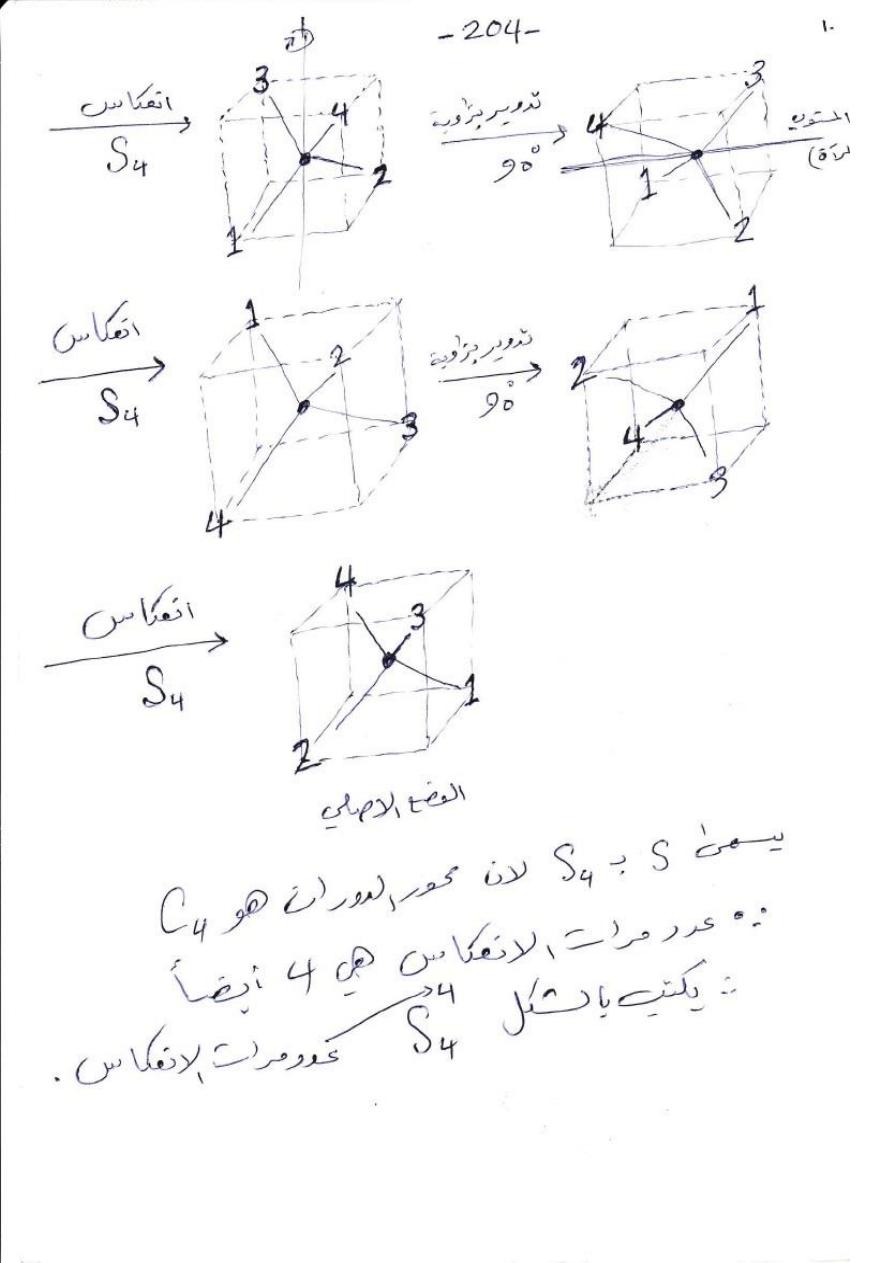 -204-
انعكاس
S4
3
4
2
1
تدوير بزاوية
90°
3
4
1
2
المستوي
انعكاس
S4
1
2
3
4
تدوير بزاوية
90°
1
2
4
3
انعكاس
S4
4
3
1
2
الوضع الاصلي
يسمى S بـ S4 لان محور الدوران هو C4
∵ عدد مرات الانعكاس هي 4 أيضاً
∴ يكتب بالشكل S4 4 عدد مرات الانعكاس .